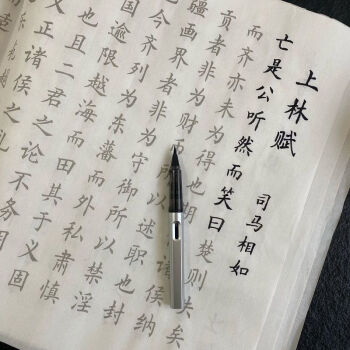 上林赋
司马相如
亡是公听然而笑曰楚则失矣
而齐亦未为得也诸侯纳
贡者非为财币所以述职也封
疆画界者非为守御所以禁淫
今齐列为东藩而外私肃慎
国逾限越海而田其于义固
也且二君之论不务
义正诸侯之礼